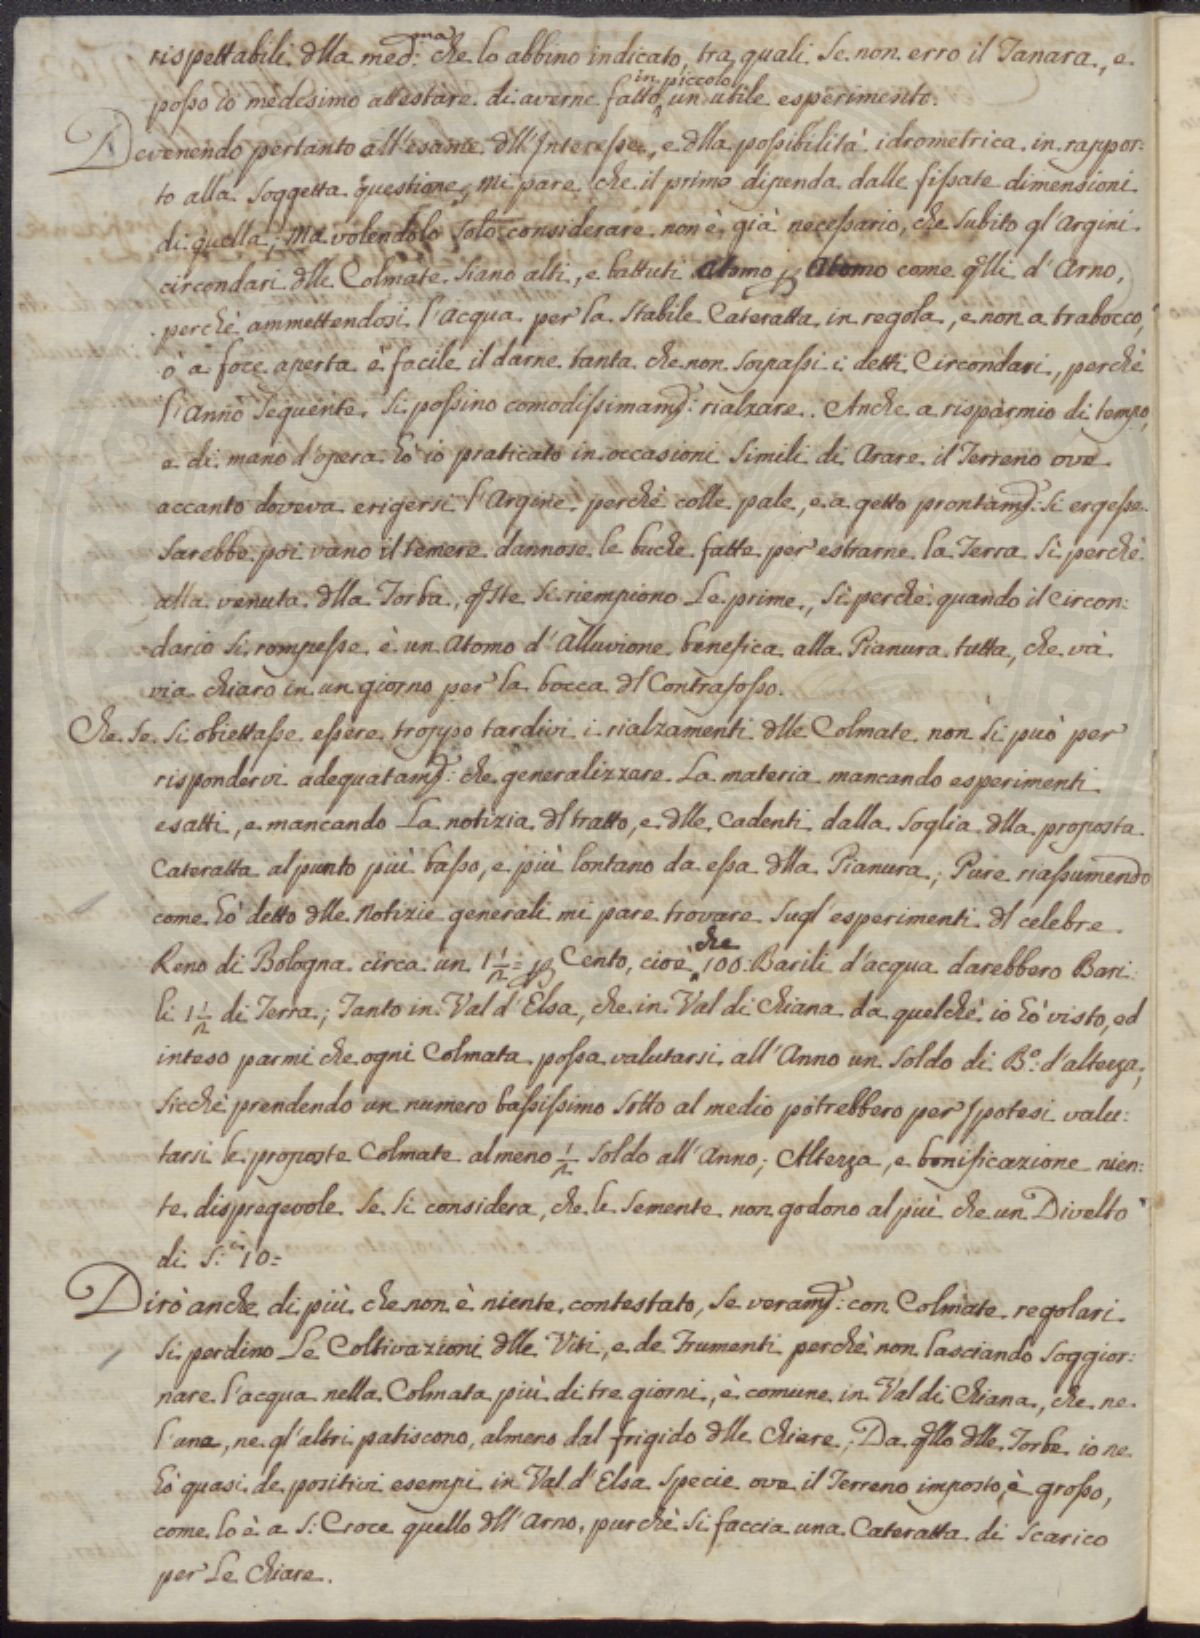 rispettabili dlla med:ma che lo abbino indicato, tra quali se non erro il Tanara, e
posso io medesimo attestare di averne fatto in piccolo un utile esperimento.
Devenendo pertanto all'esame dll'Interesse, e dlla possibilità idrometrica in rappor:
to alla soggetta questione, mi pare che il primo dipenda dalle fissate dimensioni
di quella; ma volendolo solo considerare non è già necessario, che subito gl'Argini
circondari dlle Colmate siano alti, e battuti Atomo p Atomo come qlli d'Arno,
perchè ammettendosi l'acqua per la stabile Cateratta in regola, e non a trabocco,
ò a foce aperta è facile il darne tanta che non sorpassi i detti Circondari, perchè
l'Anno seguente si possino comodissimamte: rialzare. Anche a risparmio di tempo,
e di mano d'opera hò io praticato in occasioni simili di Arare il Terreno ove
accanto doveva erigersi l'Argine perchè colle pale, e a getto prontamte: si ergesse
Sarebbe poi vano il temere dannose le buche fatte per estrarne la Terra si perchè
alla venuta dlla Torba, qste si riempiono le prime, si perchè quando il circon:
dario si rompesse è un Atomo d'Alluvione benefica alla Pianura tutta, che và
via chiaro in un giorno per la bocca dl Contrafosso.
Che se si obiettasse essere troppo tardivi i rialzamenti dlle Colmate non si può per
rispondervi adequatamte: che generalizzare la materia mancando esperimenti
esatti, e mancando la notizia dl tratto, e dlle Cadenti dalla soglia dlla proposta
Cateratta al punto più basso, e più lontano da essa dlla Pianura; Pure riassumendo
come hò detto dlle notizie generali mi pare trovare sugl'esperimenti dl celebre
Reno di Bologna circa un 1 1/2 = p Cento, cioè che 100: Barili d'acqua darebbero Bari:
li 1 1/2 di Terra; Tanto in Val d'Elsa, che in Val di Chiana da quelchè io hò visto, ed
inteso parmi che ogni Colmata possa valutarsi all'Anno un soldo di B.o: d'altezza,
sicchè prendendo un numero bassissimo sotto al medio potrebbero per Ipotesi valu:
tarsi le proposte Colmate almeno 1/2 soldo all'Anno; Altezza, e bonificazione nien:
te dispregevole se si considera, che le semente non godono al più che un Divelto
di S: 10=
Dirò anche di più che non è niente contestato, se veramte: con Colmate regolari
si perdino le Coltivazioni dlle Viti, e de Frumenti perchè non lasciando soggior:
nare l'acqua nella Colmata più di tre giorni, è comune in Val di Chiana, che ne
l'une, ne gl'altri patiscono, almeno dal frigido dlle chiare; Da qllo dlle Torbe io ne
hò quasi de positivi esempi in Val d'Elsa specie ove il Terreno imposto è grosso,
come lo è a S: Croce quello dll'Arno, purchè si faccia una Cateratta di scarico
per le chiare.